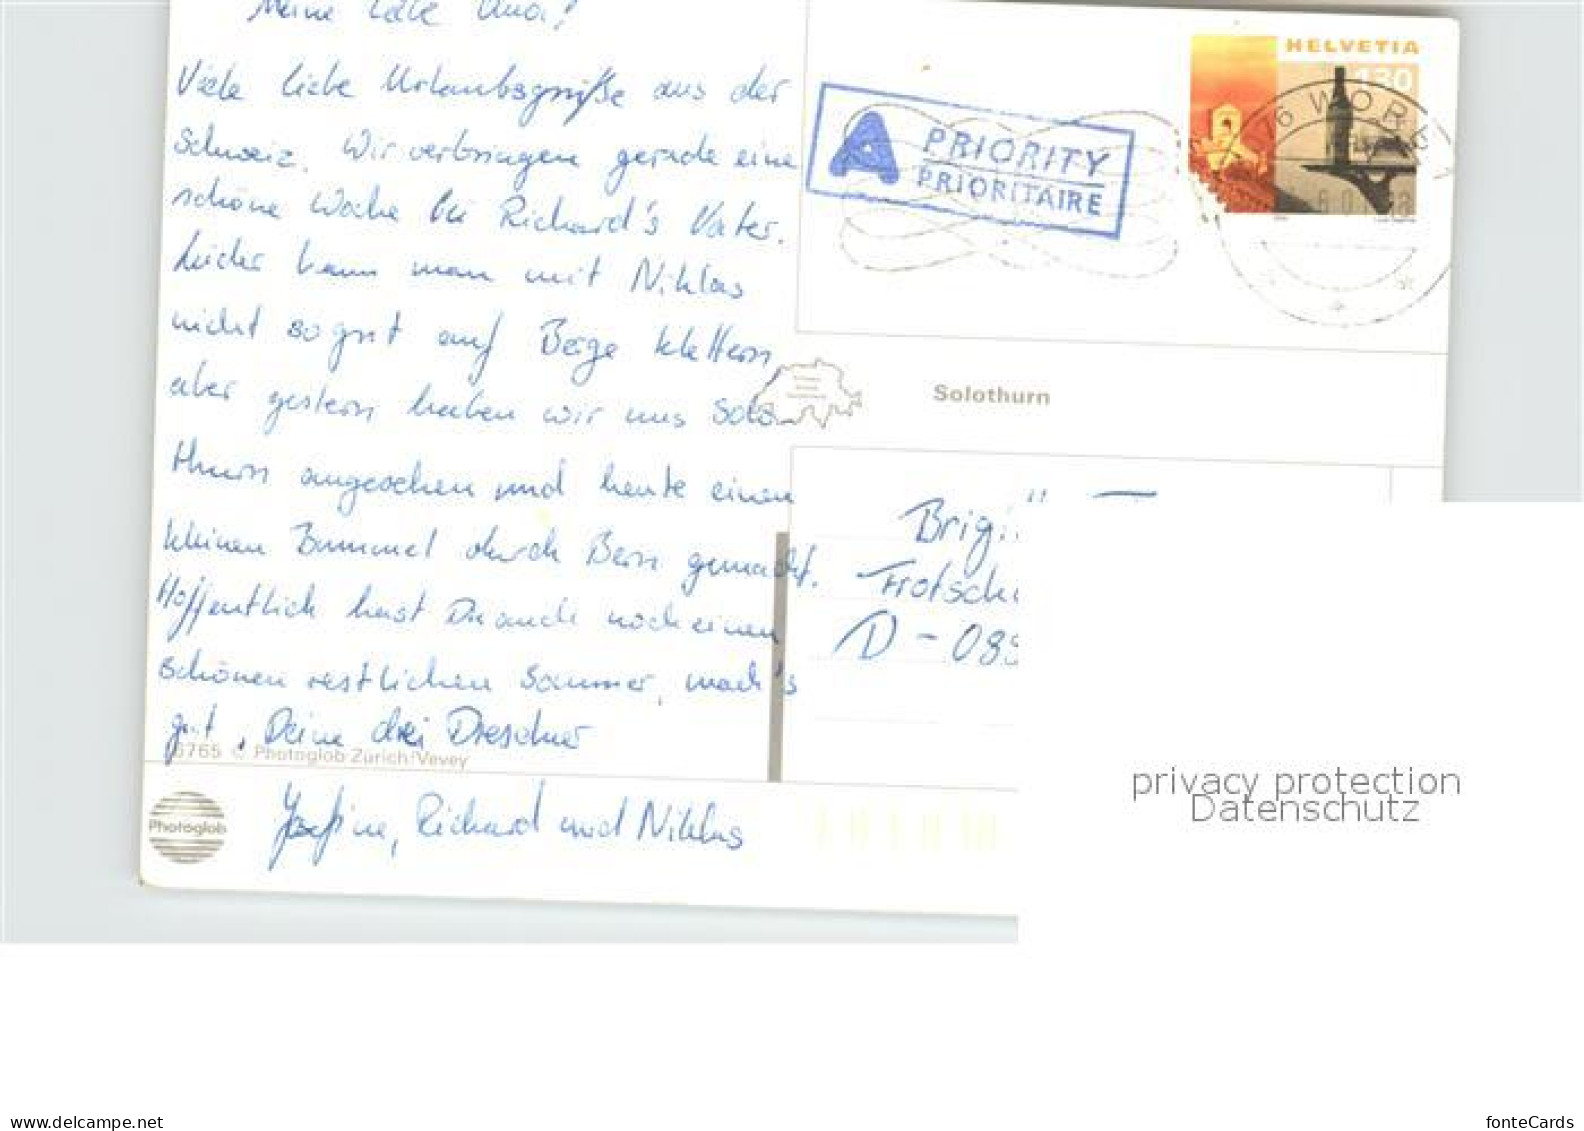 Meine liebe
Viele liebe Urlaubsgrüße aus der
Schweiz. Wir verbringen gerade eine
schöne Woche bei Richard's Vater.
Leider kann man mit Niklas
nicht so gut auf Berge klettern,
aber gestern haben wir uns Solo-
thurn angesehen und heute einen
kleinen Bummel durch Bern gemacht.
Hoffentlich hast Du auch noch einen
schönen restlichen Sommer, mach's
gut, Deine drei Drescher
Josefine, Richard und Niklas
6765 © Photoglob Zürich/Vevey
Photoglob
A PRIORITY
PRIORITAIRE
HELVETIA
130
Solothurn
Brigi
Frotsch
D-08
privacy protection
Datenschutz
www.delcampe.net
fonteCards